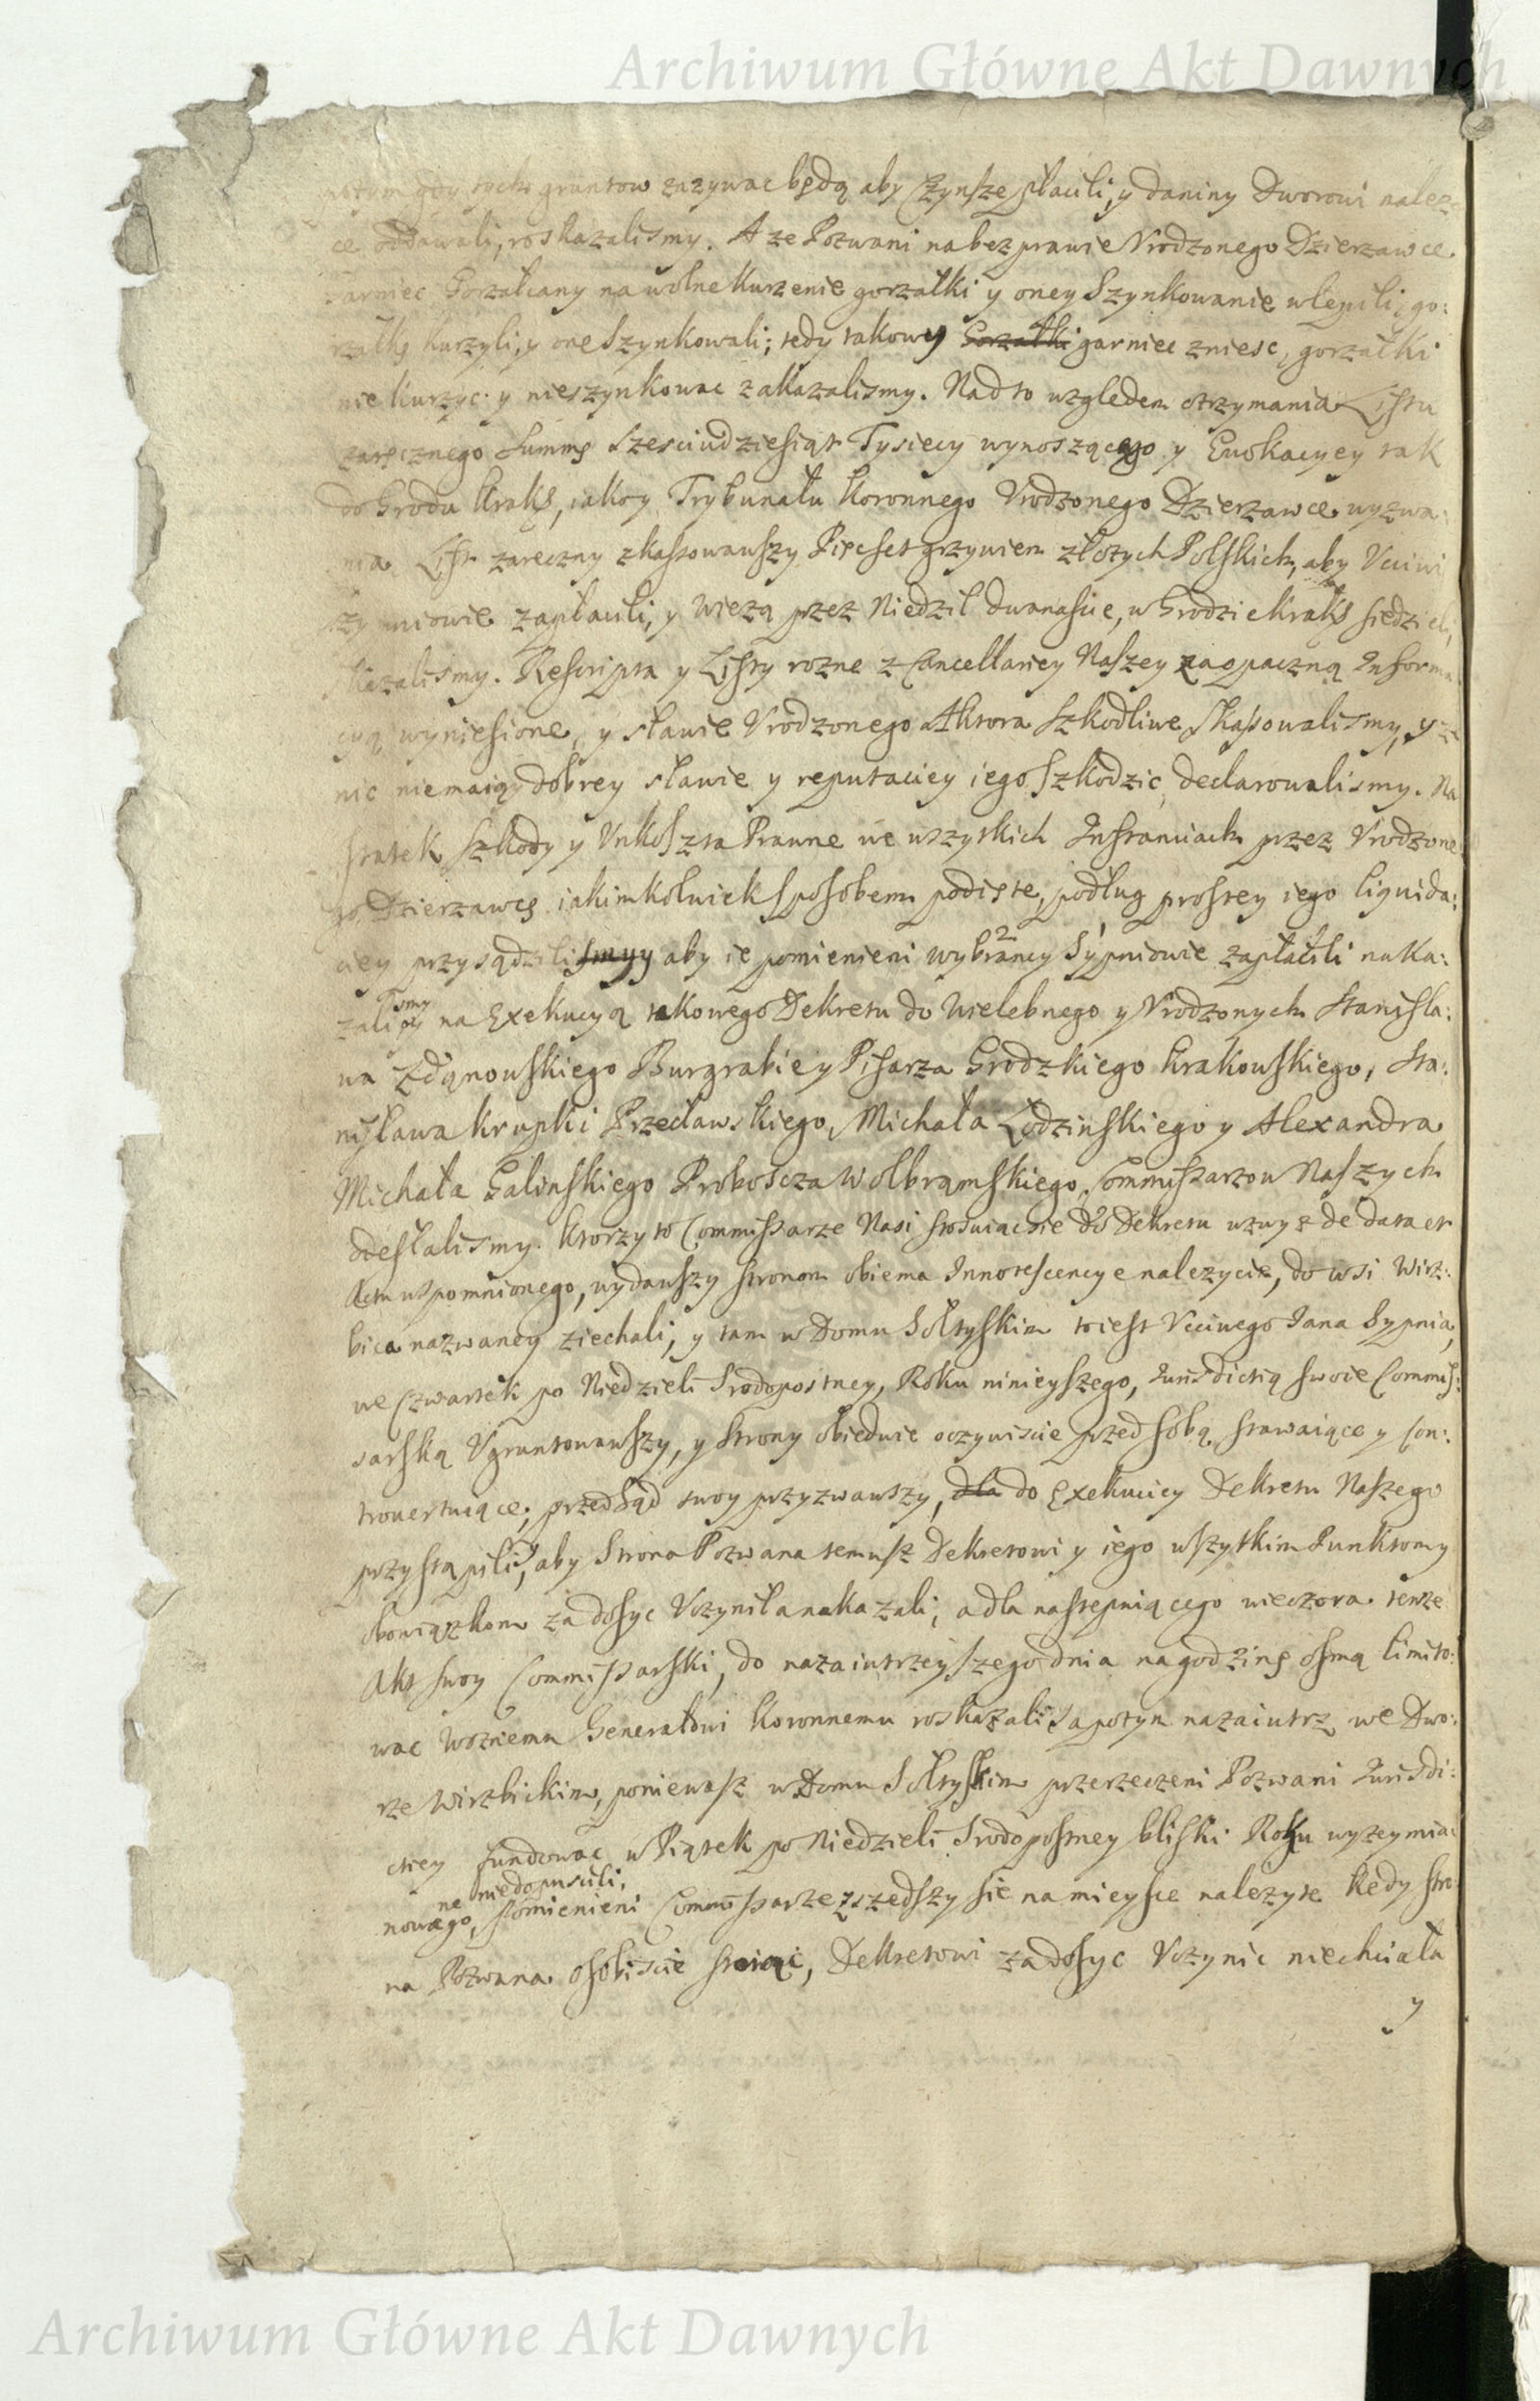 Archiwum Główne Akt Dawnych
gdy tych gruntow zazywac będą aby Czynsze płacili, y daniny Dworowi nalez-
ce oddawali, roskazalismy. A ze Pozwani na bezprawie Vrodzonego Dzierzawce
Garniec Gorzałczany na wolne kurzenie gorzałki y oney Szynkowanie wlepili, go:
rzałkę kurzyli, y one Szynkowali; tedy takowy Gorzałki garniec zniesc, gorzałki
nie kurzyc y nieszynkowac zakazalismy. Nad to wzgledem otrzymania Listu
zaręcznego Summę Szesciudziesiąt Tysiecy wynoszącego y Evokacyey tak
do Grodu Kraks, iako y Trybunału Koronnego Vrodzonego Dzierzawce wyzwa:
nia List zareczny zkassowawszy Pięcset grzywien złotych Polskich, aby Vcciwi
Sypniowie zapłacili, y wiezą przez Niedzil dwanascie, w Grodzie Kraks siedzieli,
skazalismy. Rescripta y Listy rozne z Cancellariey Naszey zaopaczną Informa
cyą wyniesione, y sławie Vrodzonego Aktora szkodliwe skassowalismy, y ze
nic niemaiąy dobrey sławie y reputaciey iego szkodzic, declarowalismy. Na
statek szkody y Vnkoszta Prawne we wszytkich Instanciach przez Vrodzone
go, Dzierzawcę iakimkolwiek sposobem podięte, podług prostey iego liquida:
ciey przysądzilismyy aby ie pomienieni wybrańcy Sypniowie zapłacili naka:
zalismy na Exekucyą takowego Dekretu do Wielebnego y Vrodzonych Stanisla:
wa Zdąnowskiego Burgrabie y Pisarza Grodzkiego Krakowskiego, Sta:
nisława Krupki Przecławskiego, Michała Łodzinskiego y Alexandra
Michała Galinskiego Proboscza Wolbramskiego, Commissarzow Naszych
odesłalismy. Ktorzy to Commissarze Nasi stosuiącsie do Dekretu wzwyz de data et
Actu wspomnionego, wydawszy stronom obiema Innotescencye nalezycie, do wsi Wirz:
bica nazwaney ziechali, y tam w Domu Sołtyskim to iest Vcciwego Jana Sypnia,
we Czwartek po Niedzieli Srodopostney, Roku ninieyszego, Jurisdictią swoie Commis:
sarską Vgruntowawszy, y strony obiedwie oczywiscie przed sobą stawaiące y Con:
trovertuiące; przed Sąd swoy przyzwawszy, dla do Exekuciey Dekretu Naszego
przystąpili, aby Strona Pozwana temusz Dekretowi y iego wszytkim Punktomy
obowiązkom zadosyc Vczyniła nakazali, a dla nastepuiącego wieczora tenze
Akt swoy Commissarski, do nazaiutrzeyszego dnia na godzinę osmą limito:
wac Woznemu Generałowi Koronnemu roskazali, a potym nazaiutrz we Dwo:
rze Wirzbickim, poniewasz w Domu Sołtyskim przerzeczeni Pozwani Jurisdi:
ctiey fundowac niedopuscili, w Piątek po Niedzieli Srodopostney bliski Roku wyzeymia:
nowanego, Pomienieni Commissarze zszedszy sie na mieysce nalezyte kedy stro
na Pozwana osobiscie stoiąc, Dekretowi zadosyc Vczynic niechciała
y
Archiwum Główne Akt Dawnych